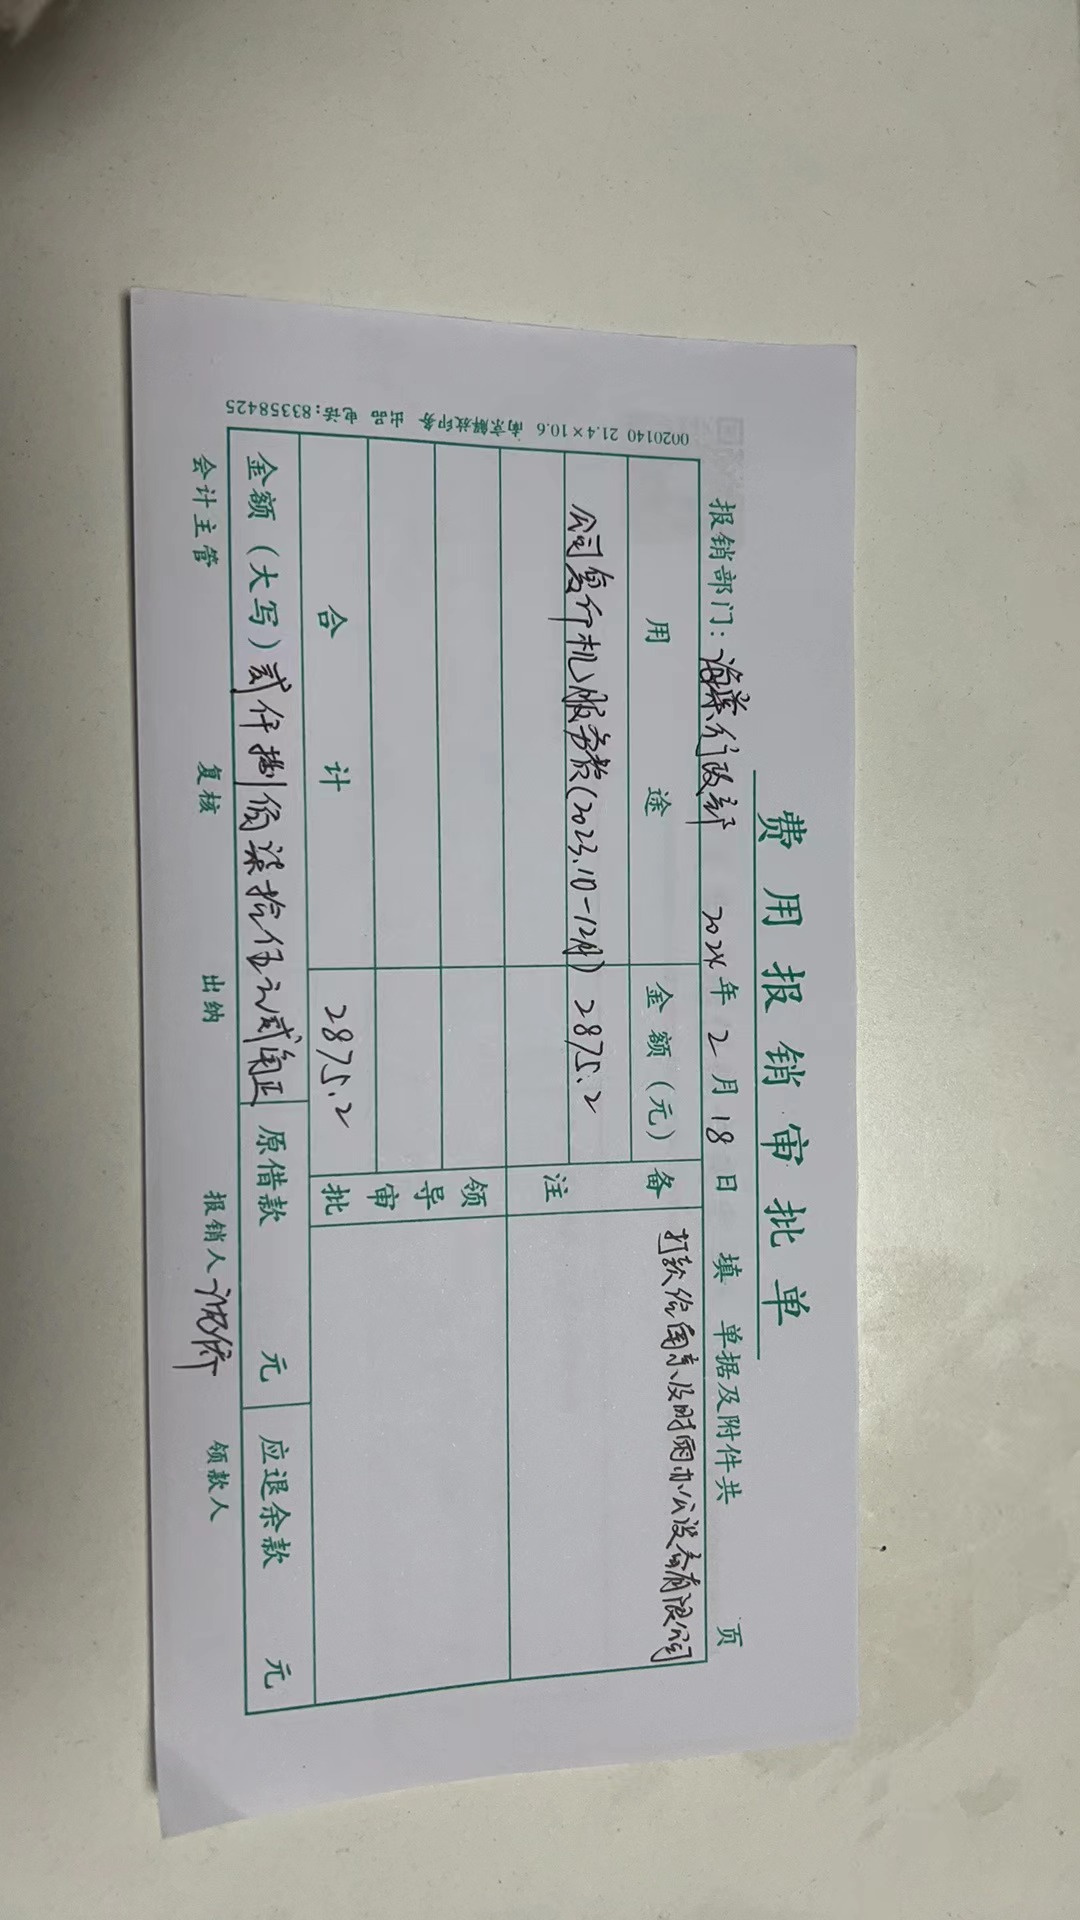 费用报销审批单
报销部门：海棠行政部 2024年2月18日 填 单据及附件共 页
用途 金额（元） 备注 打款给南京及时雨办公设备有限公司
公司复印机服务费(2023.10-12月) 2875.2
领导审批
合计 2875.2
金额（大写）贰仟捌佰柒拾伍元贰角正 原借款 元 应退余款 元
会计主管 复核 出纳 报销人 领款人
0020140 21.4×10.6 南京解放印务 出品 电话:83358425